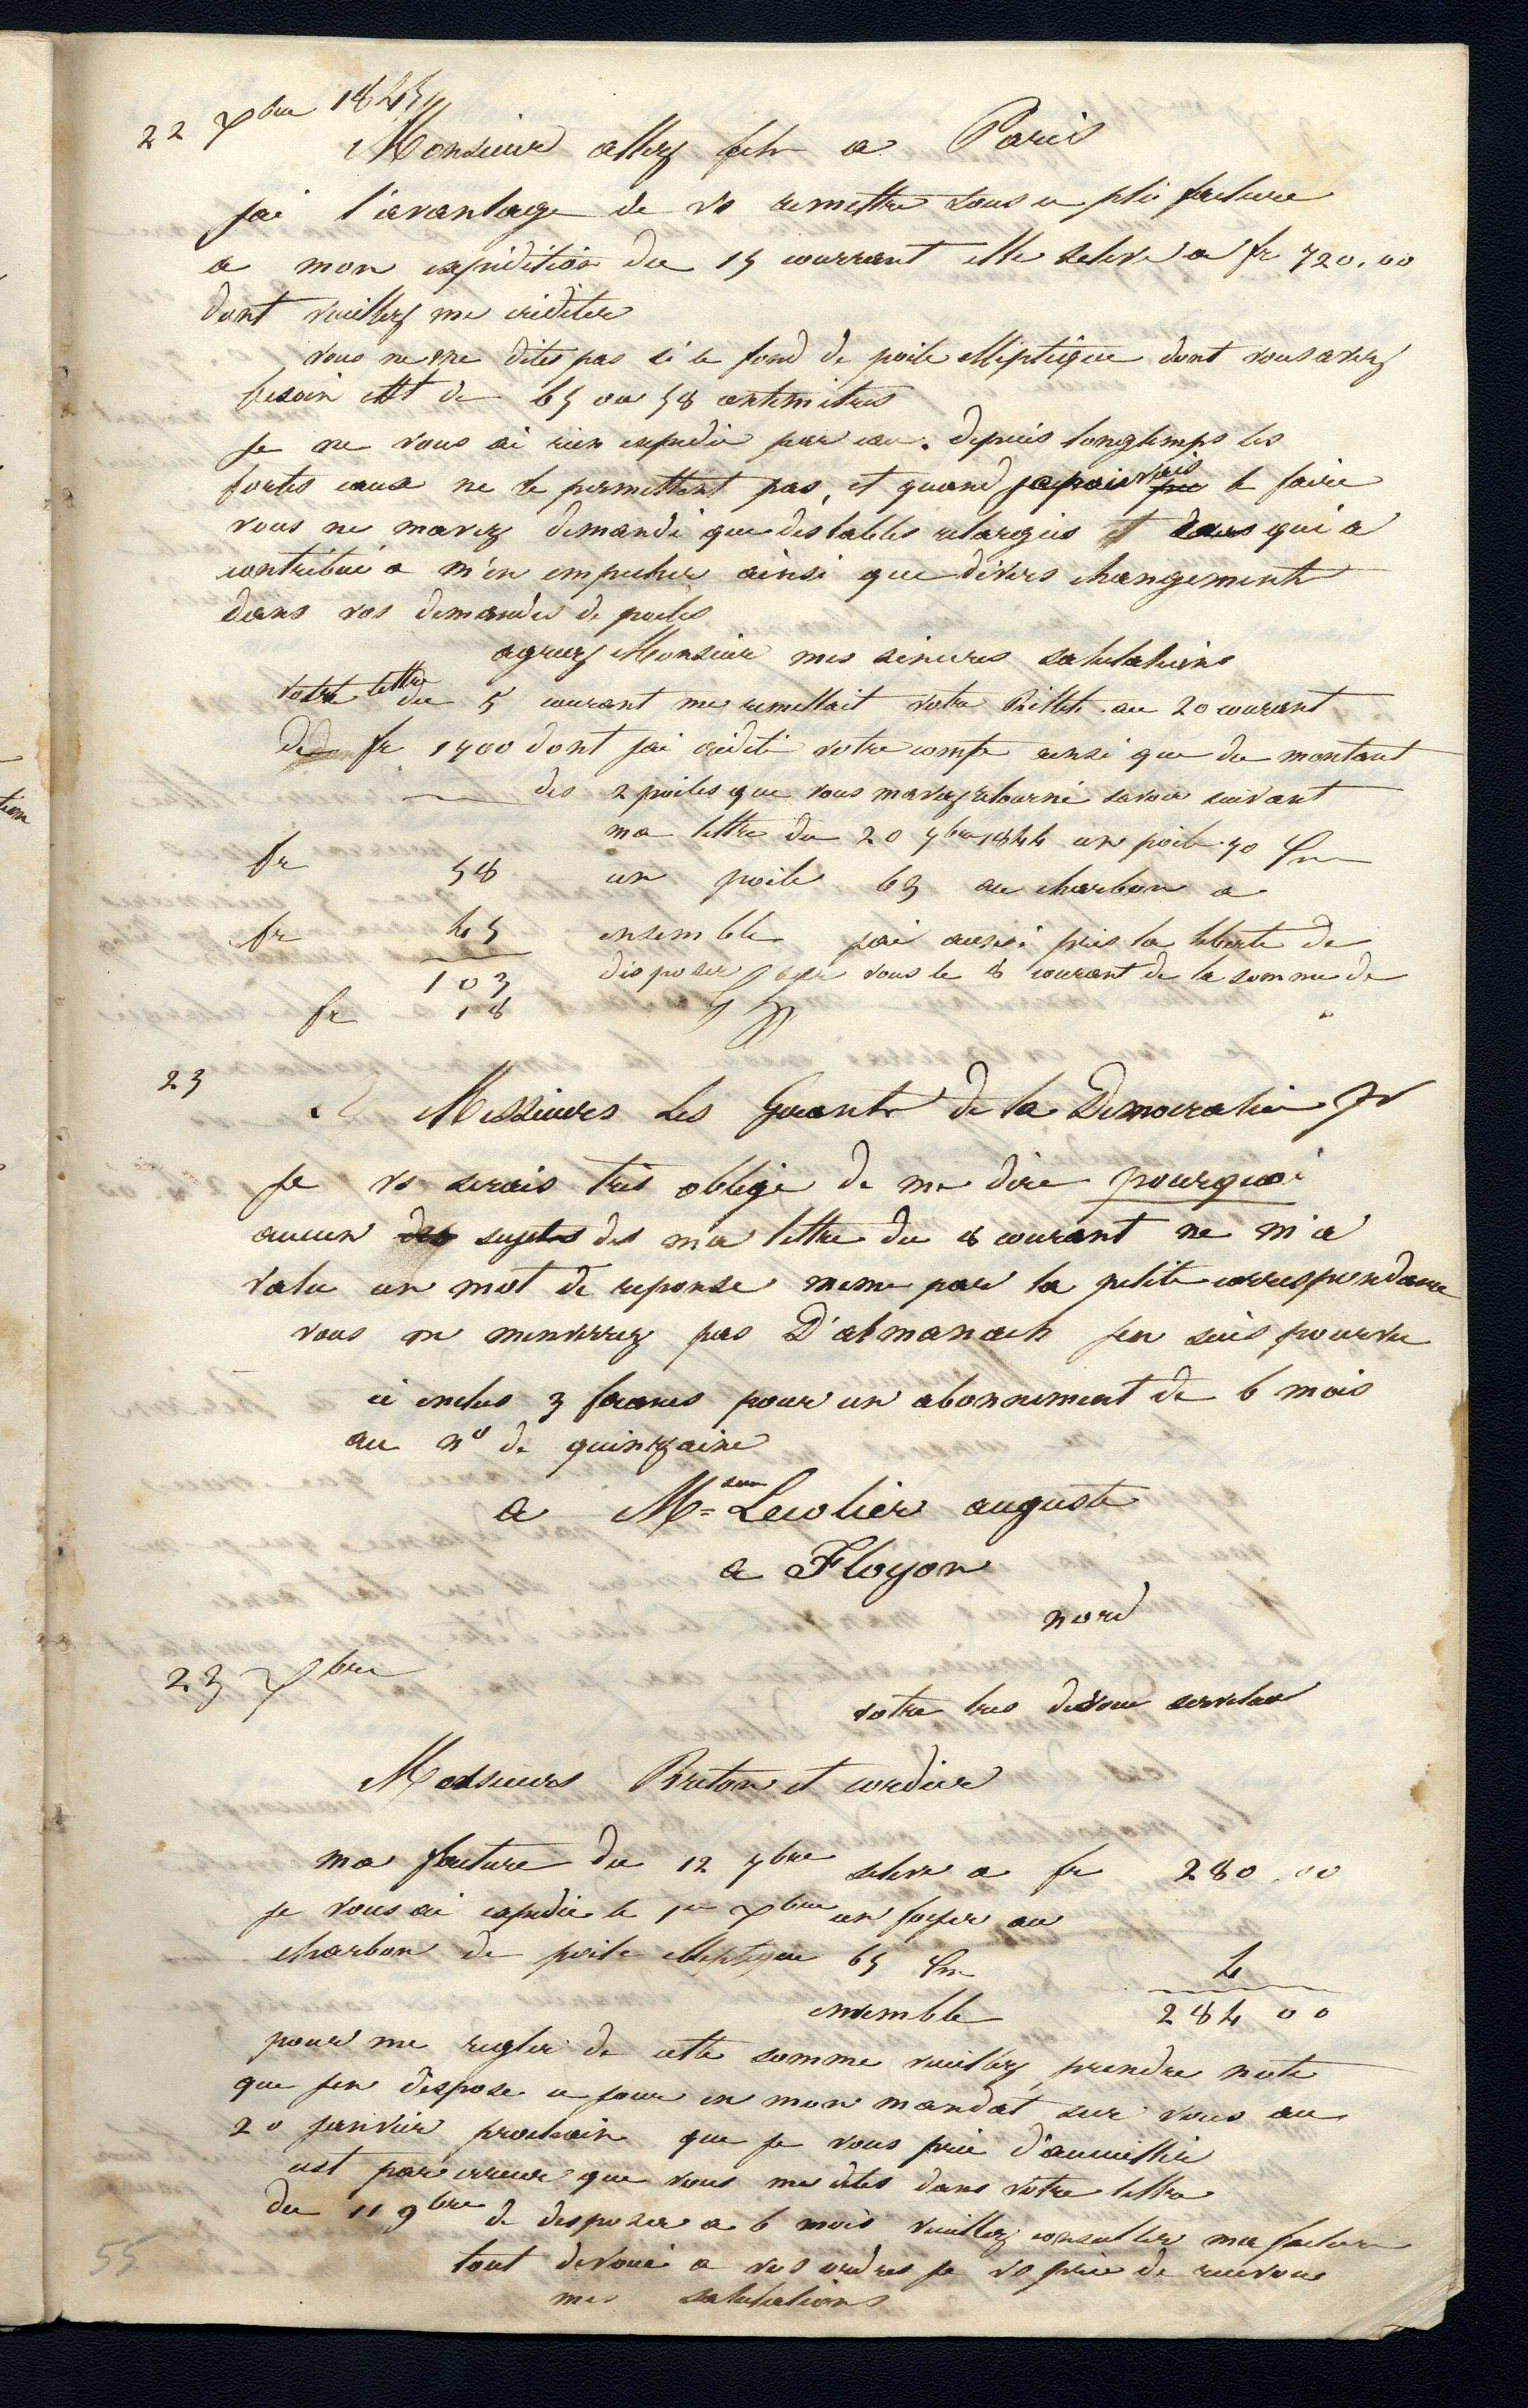 22 Xbre 1845
Monsieur allez fils a Paris
jai l'avantage de vs remettre sous ce pli facture
a mon expedition du 15 courant elle seleve a fr 720.00
dont veuillez me crediter
vous ne me dites pas si le fond de poile elliptique dont vous avez
besoin est de 65 ou 58 centimetres
je ne vous ai rien expedié par eau. depuis longtemps les
fortes eaux ne le permettent pas, et quand je pouvais le faire
vous ne mavez demandé que des tables relargies et qui a
contribué a m'en empecher ainsi que divers changements
dans vos demandes de poeles
agreez Monsieur mes sinceres salutations
votre lettre du 5 courant me remettait votre Billet au 20 courant
de fr 1500 dont jai crédité votre compte ainsi que du montant
des 2 poiles que vous mavez retourné savoir suivant
ma lettre du 20 7bre 1844 un poile 50 c/m
fr 58 un poile 65 au charbon a
fr 45 ensemble jai aussi pris la liberte de
103 disposer sur vous le 8 courant de la somme de
fr 18
23
A Messieurs Les Gerants de la Democratie
je vs serais très obligé de me dire pourquoi
aucun des sujets des ma lettre du 8 courant ne m'a
valu un mot de reponse meme par la petite correspondance
vous ne menverrez pas D'almanach jen suis pourvu
ci inclus 3 francs pour un abonnement de 6 mois
au no de quinzaine
a Mr Lecolier auguste
a Floyon
nord
23 Xbre
votre tres devoué serviteur
Messieurs Breton et cordier
ma facture du 12 7bre seleve a fr 280.00
je vous ai expedié le 1er Xbre un foyer au
charbon de poile elliptique 65 c/m 4
ensemble 284 00
pour me regler de cette somme veuillez prendre note
que jen dispose ce jour en mon mandat sur vous au
20 janvier prochain que je vous prie d'acceuillir
cest par erreur que vous me dites dans votre lettre
du 11 9bre de disposer a 6 mois veuillez consulter ma facture
tout devoué a vos ordres je vs prie de recevoir
mes salutations
55